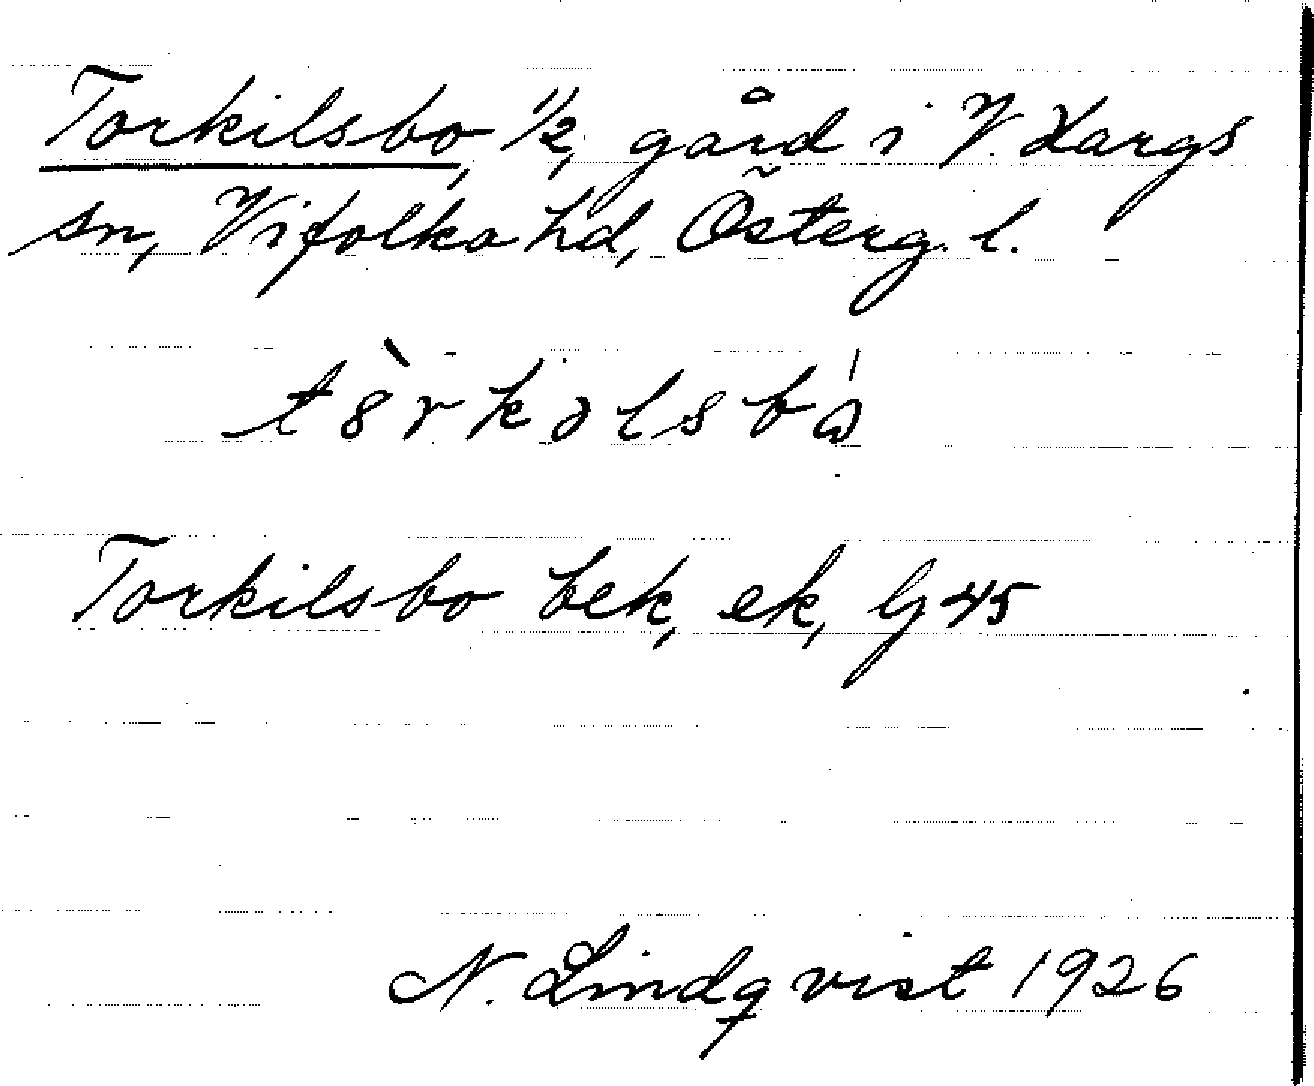 Torkilsbo, 1/2, gård i V. Hargs
sn, Vifolka hd, Österg. l.
tȣ̀rkəlsbɷ́
Torkilsbo bek, ek, Lj 45
N. Lindqvist 1926